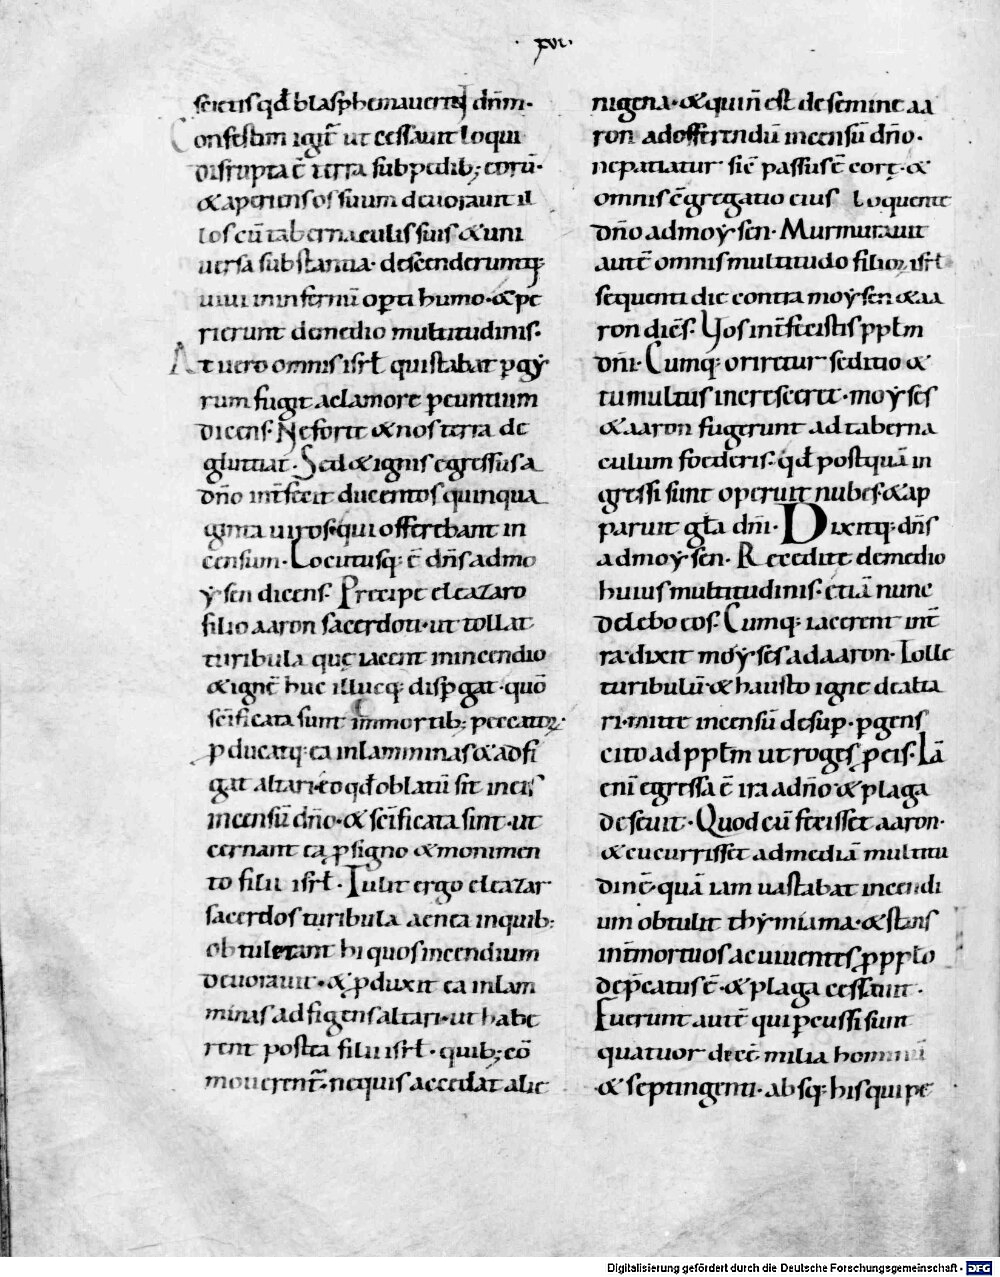 · xvi ·
scietis qđ blasphemauerint dn̄m ·
Confestim igit̄ ut cessauit loqui
disrupta ē terra sub pedib; eorū ·
& aperiens os suum deuorauit il
los cū tabernaculis suis & uni
uersa substantia · descenderuntq;
uiui in infernū opti humo · & pe
rierunt de medio multitudinis ·
At uero omnis isrł qui stabat p gẏ
rum fugit a clamore pereuntium
dicens · Ne forte & nos terra de
glutiat · Sed & ignis egressus a
dn̄o int̄fecit ducentos quinqua
ginta uiros · qui offerebant in
censum · Locutusq; ē dn̄s ad mo
ẏsen dicens · Precipe eleazaro
filio aaron sacerdoti · ut tollat
turibula quę iacent in incendio
& ignē huc illucq; dispgat · quō
sc̄ificata sunt in mortib; peccatoꝝ ·
pducatq; ea in lamminas & adfi
gat altari · eo qđ oblatū sit in eis
incensū dn̄o · & sc̄ificata sint · ut
cernant ea p signo & monimen
to filii isrł · Tulit ergo eleazar
sacerdos turibula aenea in quib;
obtulerant hi quos incendium
deuorauit · & pduxit ea in lam
minas adfigens altari · ut habe
rent postea filii isrł · quib; cō
monerent̄ · ne quis accedat alie
nigena · & qui n̄ est de semine aa
ron ad offerendū incensū dn̄o ·
ne patiatur sic̄ passus ē corę · &
omnis c̄gregatio eius loquente
dn̄o ad moẏsen · Murmurauit
autē omnis multitudo filioꝝ isrł
sequenti die contra moẏsen & aa
ron dicēs · Vos int̄fecistis ppłm
dn̄i · Cumq; oriretur seditio &
tumultus incresceret · moẏses
& aaron fugerunt ad taberna
culum foederis · qđ postquā in
gressi sunt operuit nubes · & ap
paruit gła dn̄i · Dixitq; dn̄s
ad moẏsen · Recedite de medio
huius multitudinis · etiā nunc
delebo eos · Cumq; iacerent in t̄
ra · dixit moẏses ad aaron · Tolle
turibulū · & hausto igne de alta
ri · mitte incensū desup · pgens
cito ad ppłm ut roges p eis · Iā
eni egressa ē ira a dn̄o & plaga
deseuit · Quod cū fecisset aaron ·
& cucurrisset ad mediā multitu
dinē · quā iam uastabat incendi
um obtulit thẏmiama · & stans
int̄ mortuos ac uiuentes p pplo
dep̄catus ē · & plaga cessauit ·
Fuerunt autē qui pcussi sunt
quatuor decē milia hominū
& septingenti · absq; his qui pe
Digitalisierung gefördert durch die Deutsche Forschungsgemeinschaft - DFG